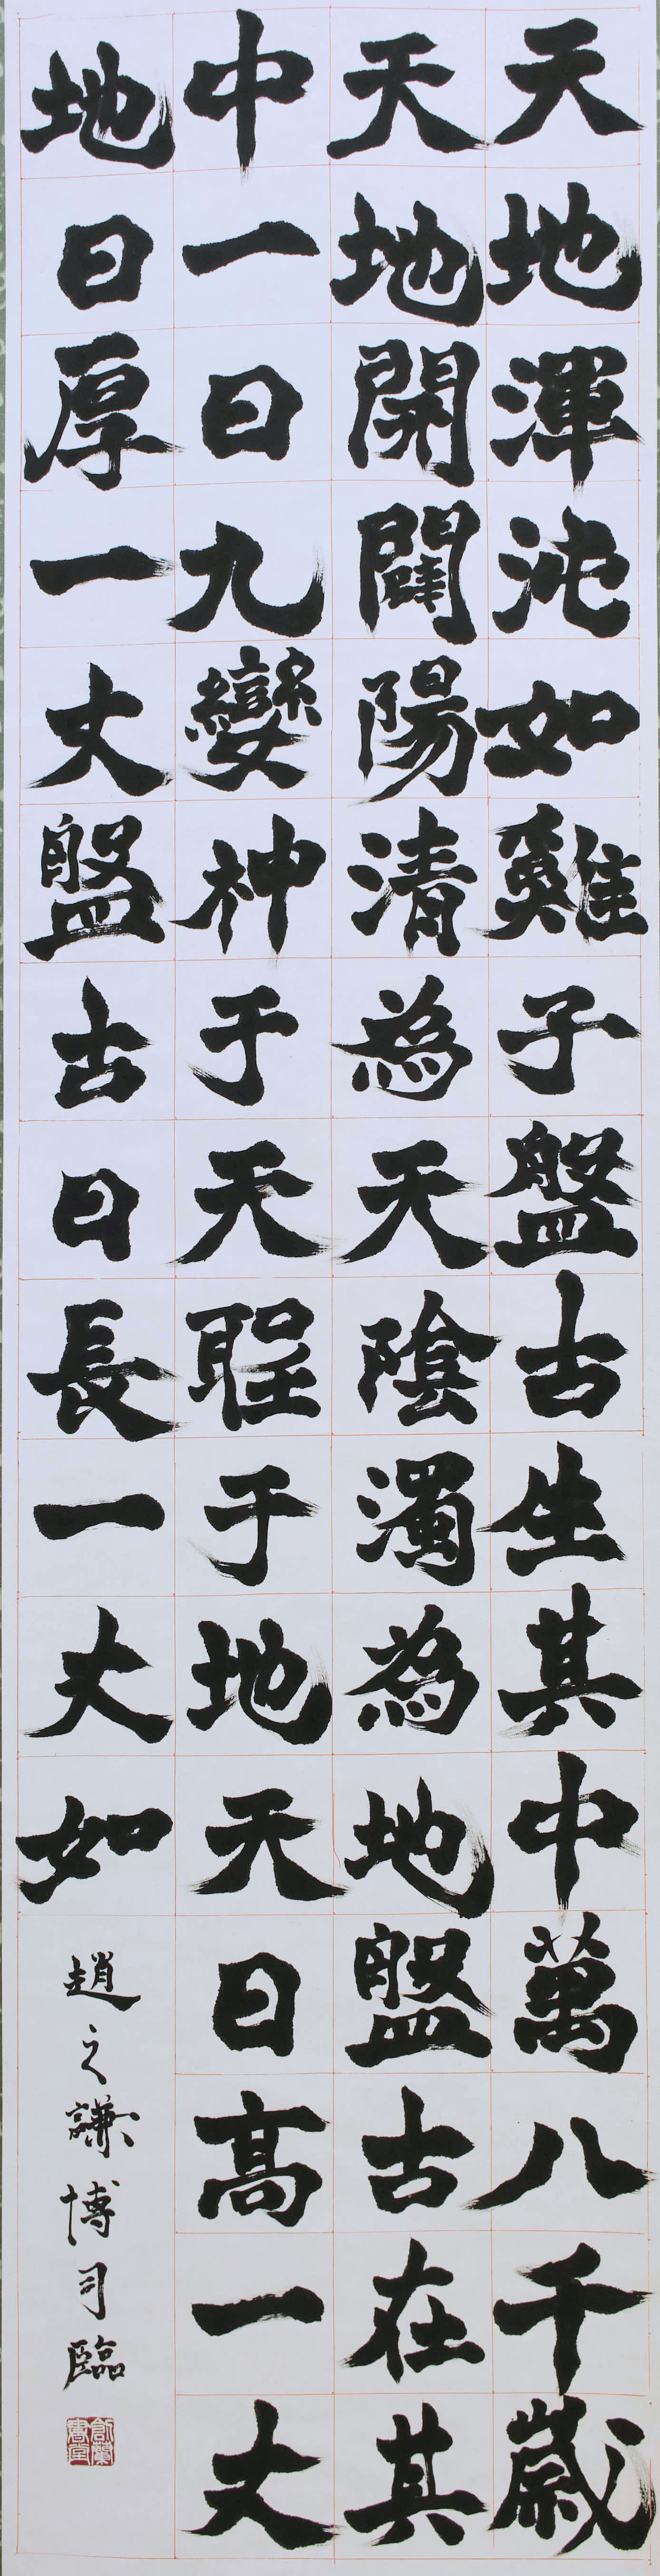 天地渾沌如雞子盤古生其中萬八千歲
天地開闢陽清為天陰濁為地盤古在其
中一日九變神于天聖于地天日高一丈
地日厚一丈盤古日長一丈如
趙之謙博司臨